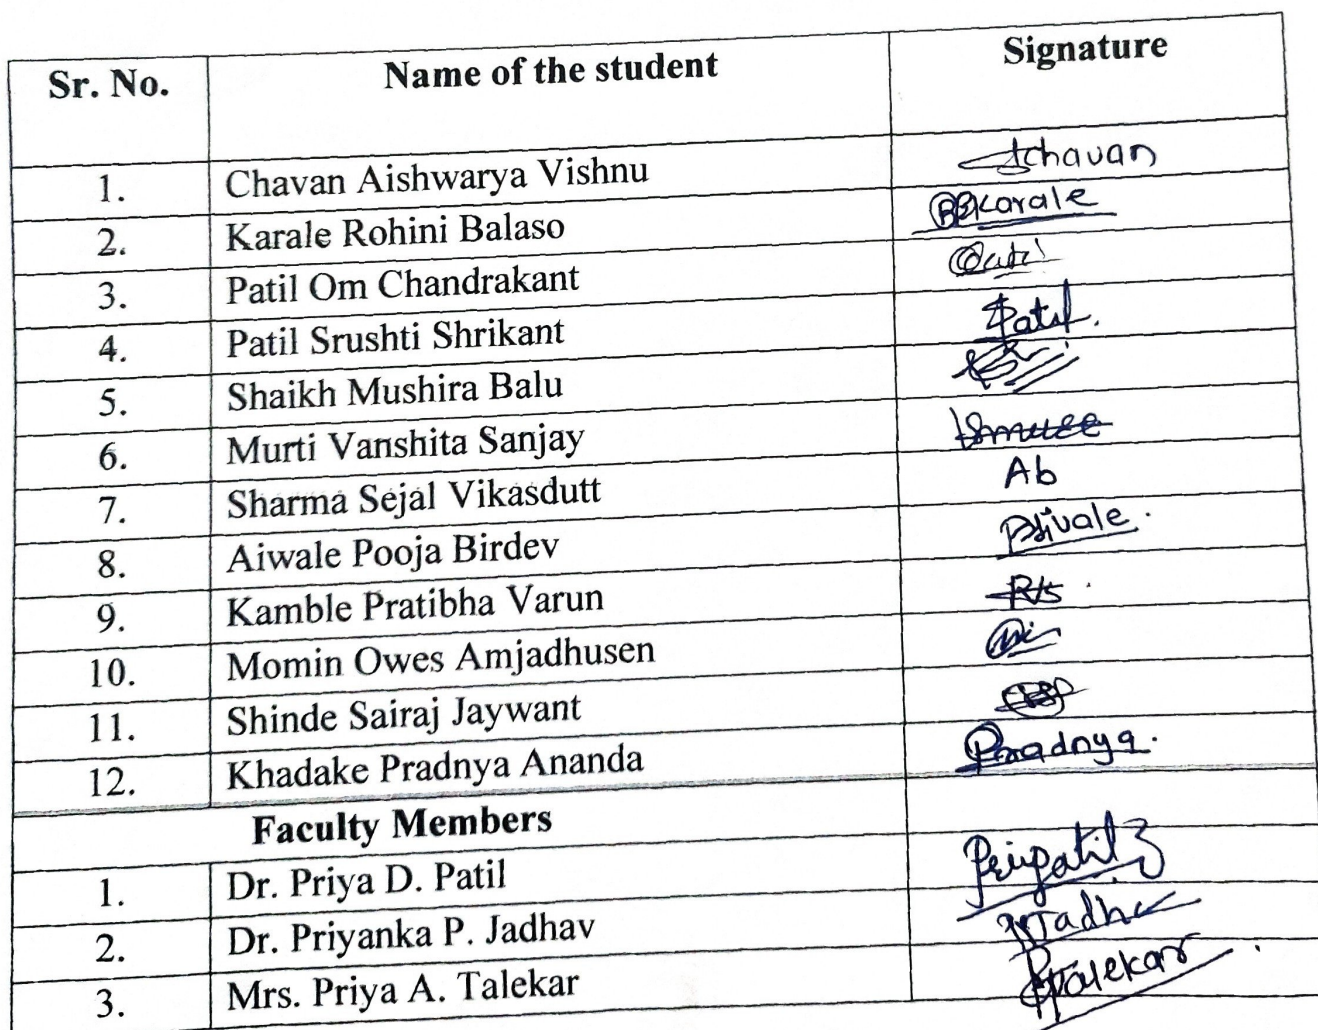 Sr. No. Name of the student Signature
1. Chavan Aishwarya Vishnu Achavan
2. Karale Rohini Balaso RBKarale
3. Patil Om Chandrakant
4. Patil Srushti Shrikant Patil.
5. Shaikh Mushira Balu
6. Murti Vanshita Sanjay
7. Sharma Sejal Vikasdutt Ab
8. Aiwale Pooja Birdev
9. Kamble Pratibha Varun
10. Momin Owes Amjadhusen
11. Shinde Sairaj Jaywant
12. Khadake Pradnya Ananda Pradnya.
Faculty Members
1. Dr. Priya D. Patil Pripatil
2. Dr. Priyanka P. Jadhav
3. Mrs. Priya A. Talekar PTalekar